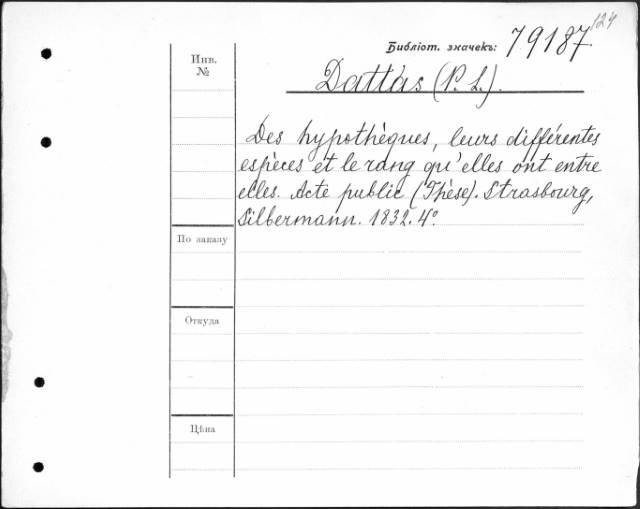 124
Библіот. значекъ: 79187.
Инв.
№
Dattas (P. L.).
Des hypothèques, leurs différentes
espèces et le rang qu'elles ont entre
elles. Acte public (Thèse). Strasbourg,
Silbermann. 1832. 4°.
По заказу
Откуда
Цѣна